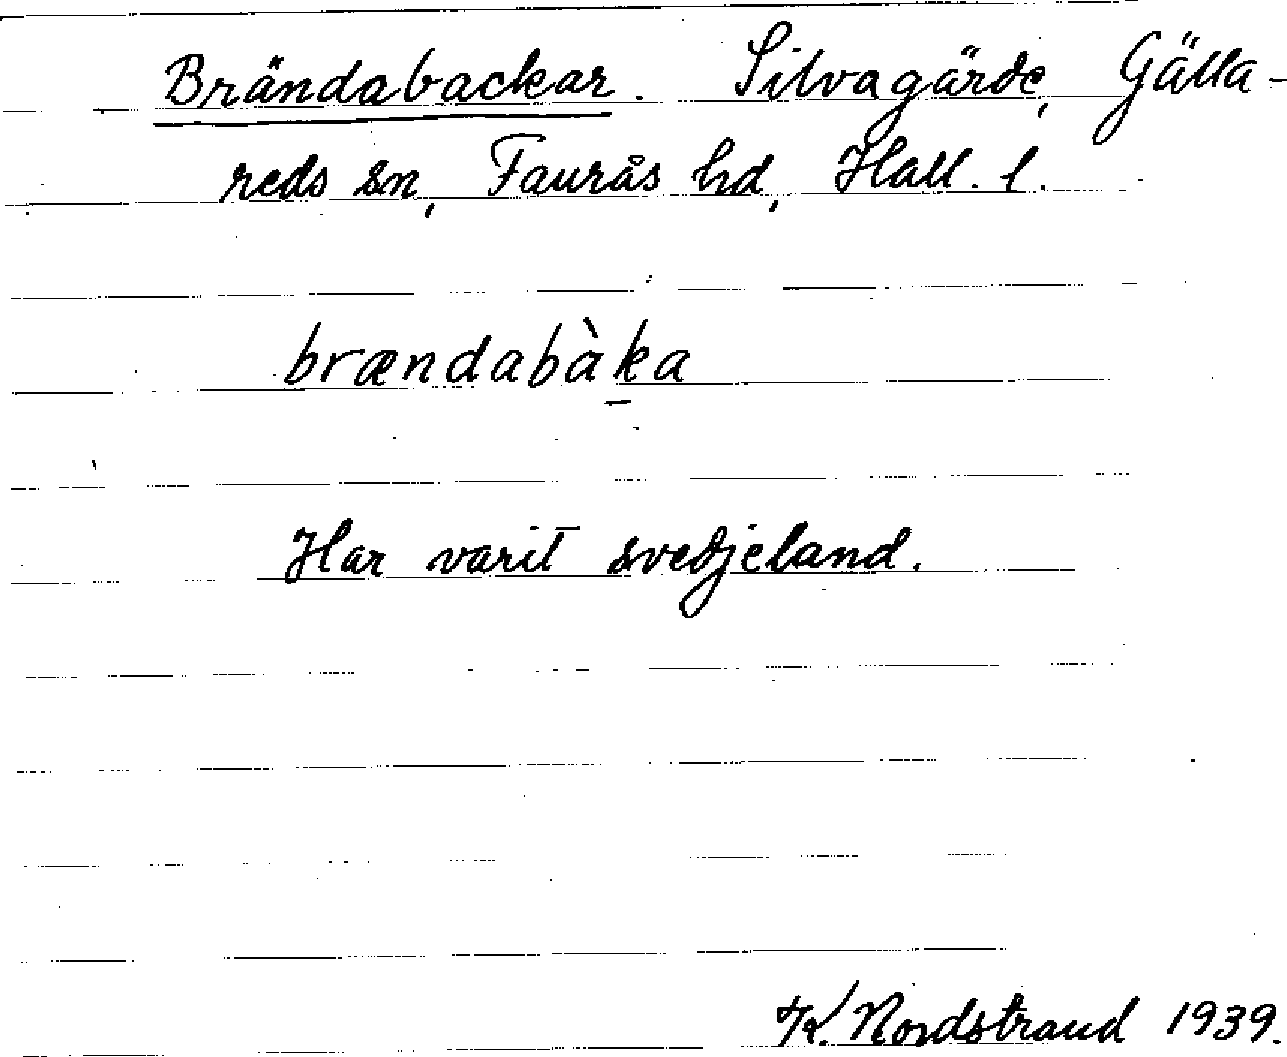 Brändabackar. Silvagärde, Gälla-
reds sn, Faurås hd, Hall. l.
brændabàka
Har varit svedjeland.
K. Nordstrand 1939.